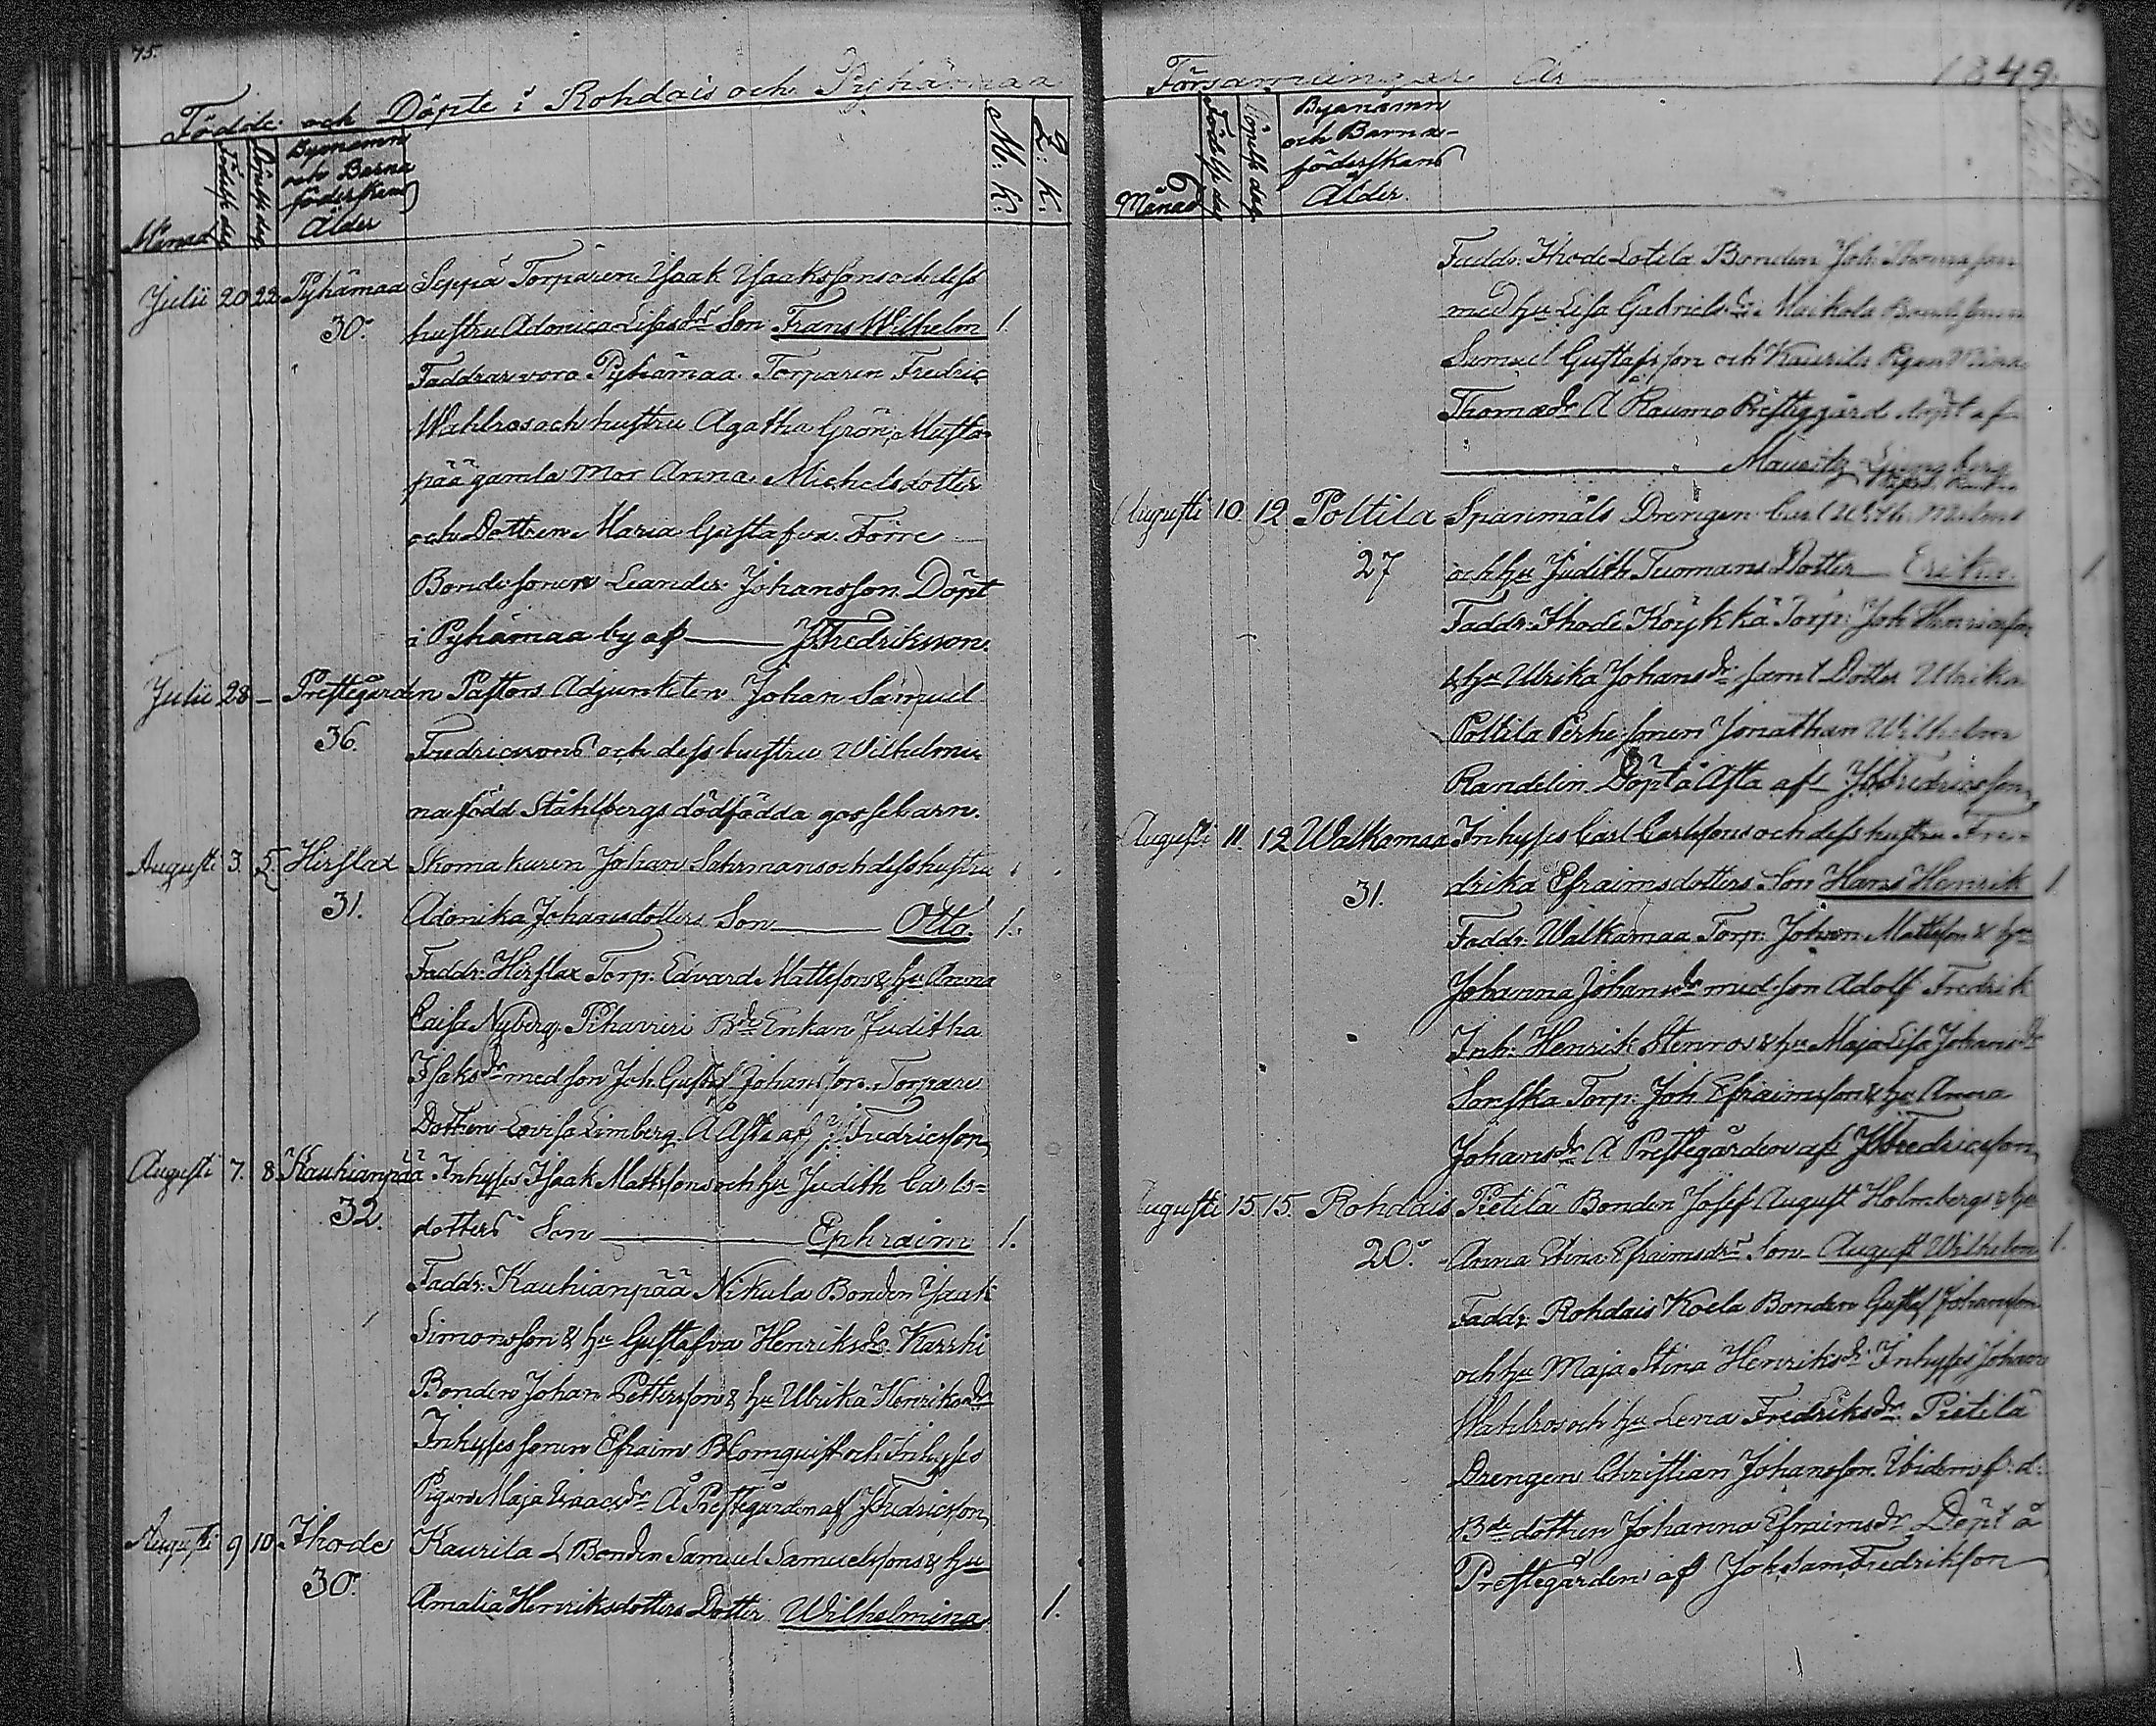 75.
Födde och Döpte i Rohdais och Pyhämaa
Månad
Födelse dag
Döpelse dag
Bynamn
och Barna
föderskans
Ålder
M. K.
Q. K.
Julii 20 22 Pyhämaa Seppä Torparen Isaak Isaakssons och dess
30. hustru Adonica Lisasdr Son Frans Wilhelm 1.
Faddrar voro Pyhämaa Torparen Fredric
Wahlros och hustru Agatha Grön, Musta-
pää gamla Mor Anna Michelsdotter
och Dottren Maria Gustafva. Förre
Bondesonen Leander Johansson. Döpt
i Pyhämaa by af JFredriksson.
Julii 28 — Prestegården Pastors Adjunkten Johan Samuel
36. Fredricsons och dess hustru Wilhelmi-
na född Ståhlbergs dödfödda gossebarn.
Augusti 3. 5. Hirslax Skomakaren Johan Sahrmans och dess hustru
31. Adonika Johansdotters Son Otto. 1.
Faddr: Hirslax Torp: Edvard Mattsson & hu Anna
Caisa Nyberg. Pihavuori Bde Enkan Juditha
Isaksdr med son Joh. Gustaf Johansson. Torpare
Dottren Lovisa Limberg. Å Asta af J Fredricsson
Augusti 7. 8. Kauhianpää Inhyses Isaak Mattssons och hu Judith Carls=
32. dotters Son Ephraim 1.
Faddr: Kauhianpää Nikula Bonden Isaak
Simonsson & hu Gustafva Henriksdr. Karhi
Bonden Johan Pettersson & hu Ulrika Henriksdr
Inhyses sonen Efraim Blomquist och Inhyses
Pigan Maja Isaacsdr Å Prestegården af JFredricsson
Augusti 9 10 Ihode Kaurila L Bonden Samuel Samuelssons & hu
30. Amalia Henriksdotters Dotter Wilhelmina 1.
Församlingar År 1849.
Månad
Födelse dag
Döpelse dag
Bynamn
och Barna-
föderskans
Ålder.
Q. K.
Faddr: Ihode Lotila Bonden Joh: Thomasson
med hu Lisa Gabrielsdr: Bondesonen
Samuel Gustafsson och Kaurila Pigan Mina
Thomasdr Å Raumo Prestegård döpt af
Mauritz Ljungberg
Augusti 10. 12 Poltila Spanmåls Drengen Carl Malms
27 och hu Judith Tuomans Dotter Erika. 1
Faddr: Ihode Köykkä Torp: Joh Henricsson
& hu Ulrika Johansdr samt Dotter Ulrika
Poltila Perhe sonen Jonathan Wilhelm
Randelin Döpt å Asta af JFredricsson
Augusti 11. 12 Walkamaa Inhyses Carl Carlssons och dess hustru Fre-
31. drika Efraimsdotters Son Hans Henrik 1.
Faddr: Walkamaa Torp: Johan Mattsson & hu
Johanna Johansdr med son Adolf Fredrik
Inh: Henrik Stenros & hu Maja Lisa Johansdr
Torp: Joh Efraimsson & hu Anna
Johansdr Å Prestegården af JFredricsson
Augusti 15 15. Rohdais Pietilä Bonden Josef August Holmbergs & hu
20. Anna Stina Efraimsdrs Son August Wilhelm 1.
Faddr: Rohdais Koela Bonden Gustaf Johansson
och hu Maja Stina Henriksdr: Inhyses Johan
Wahlros och hu Lena Fredriksdr: Pietilä
Drengen Christian Johansson. Ibidem f: d:
Bde dottren Johanna Efraimsdr Döpt å
Prestegården af Joh Sam Fredriksson